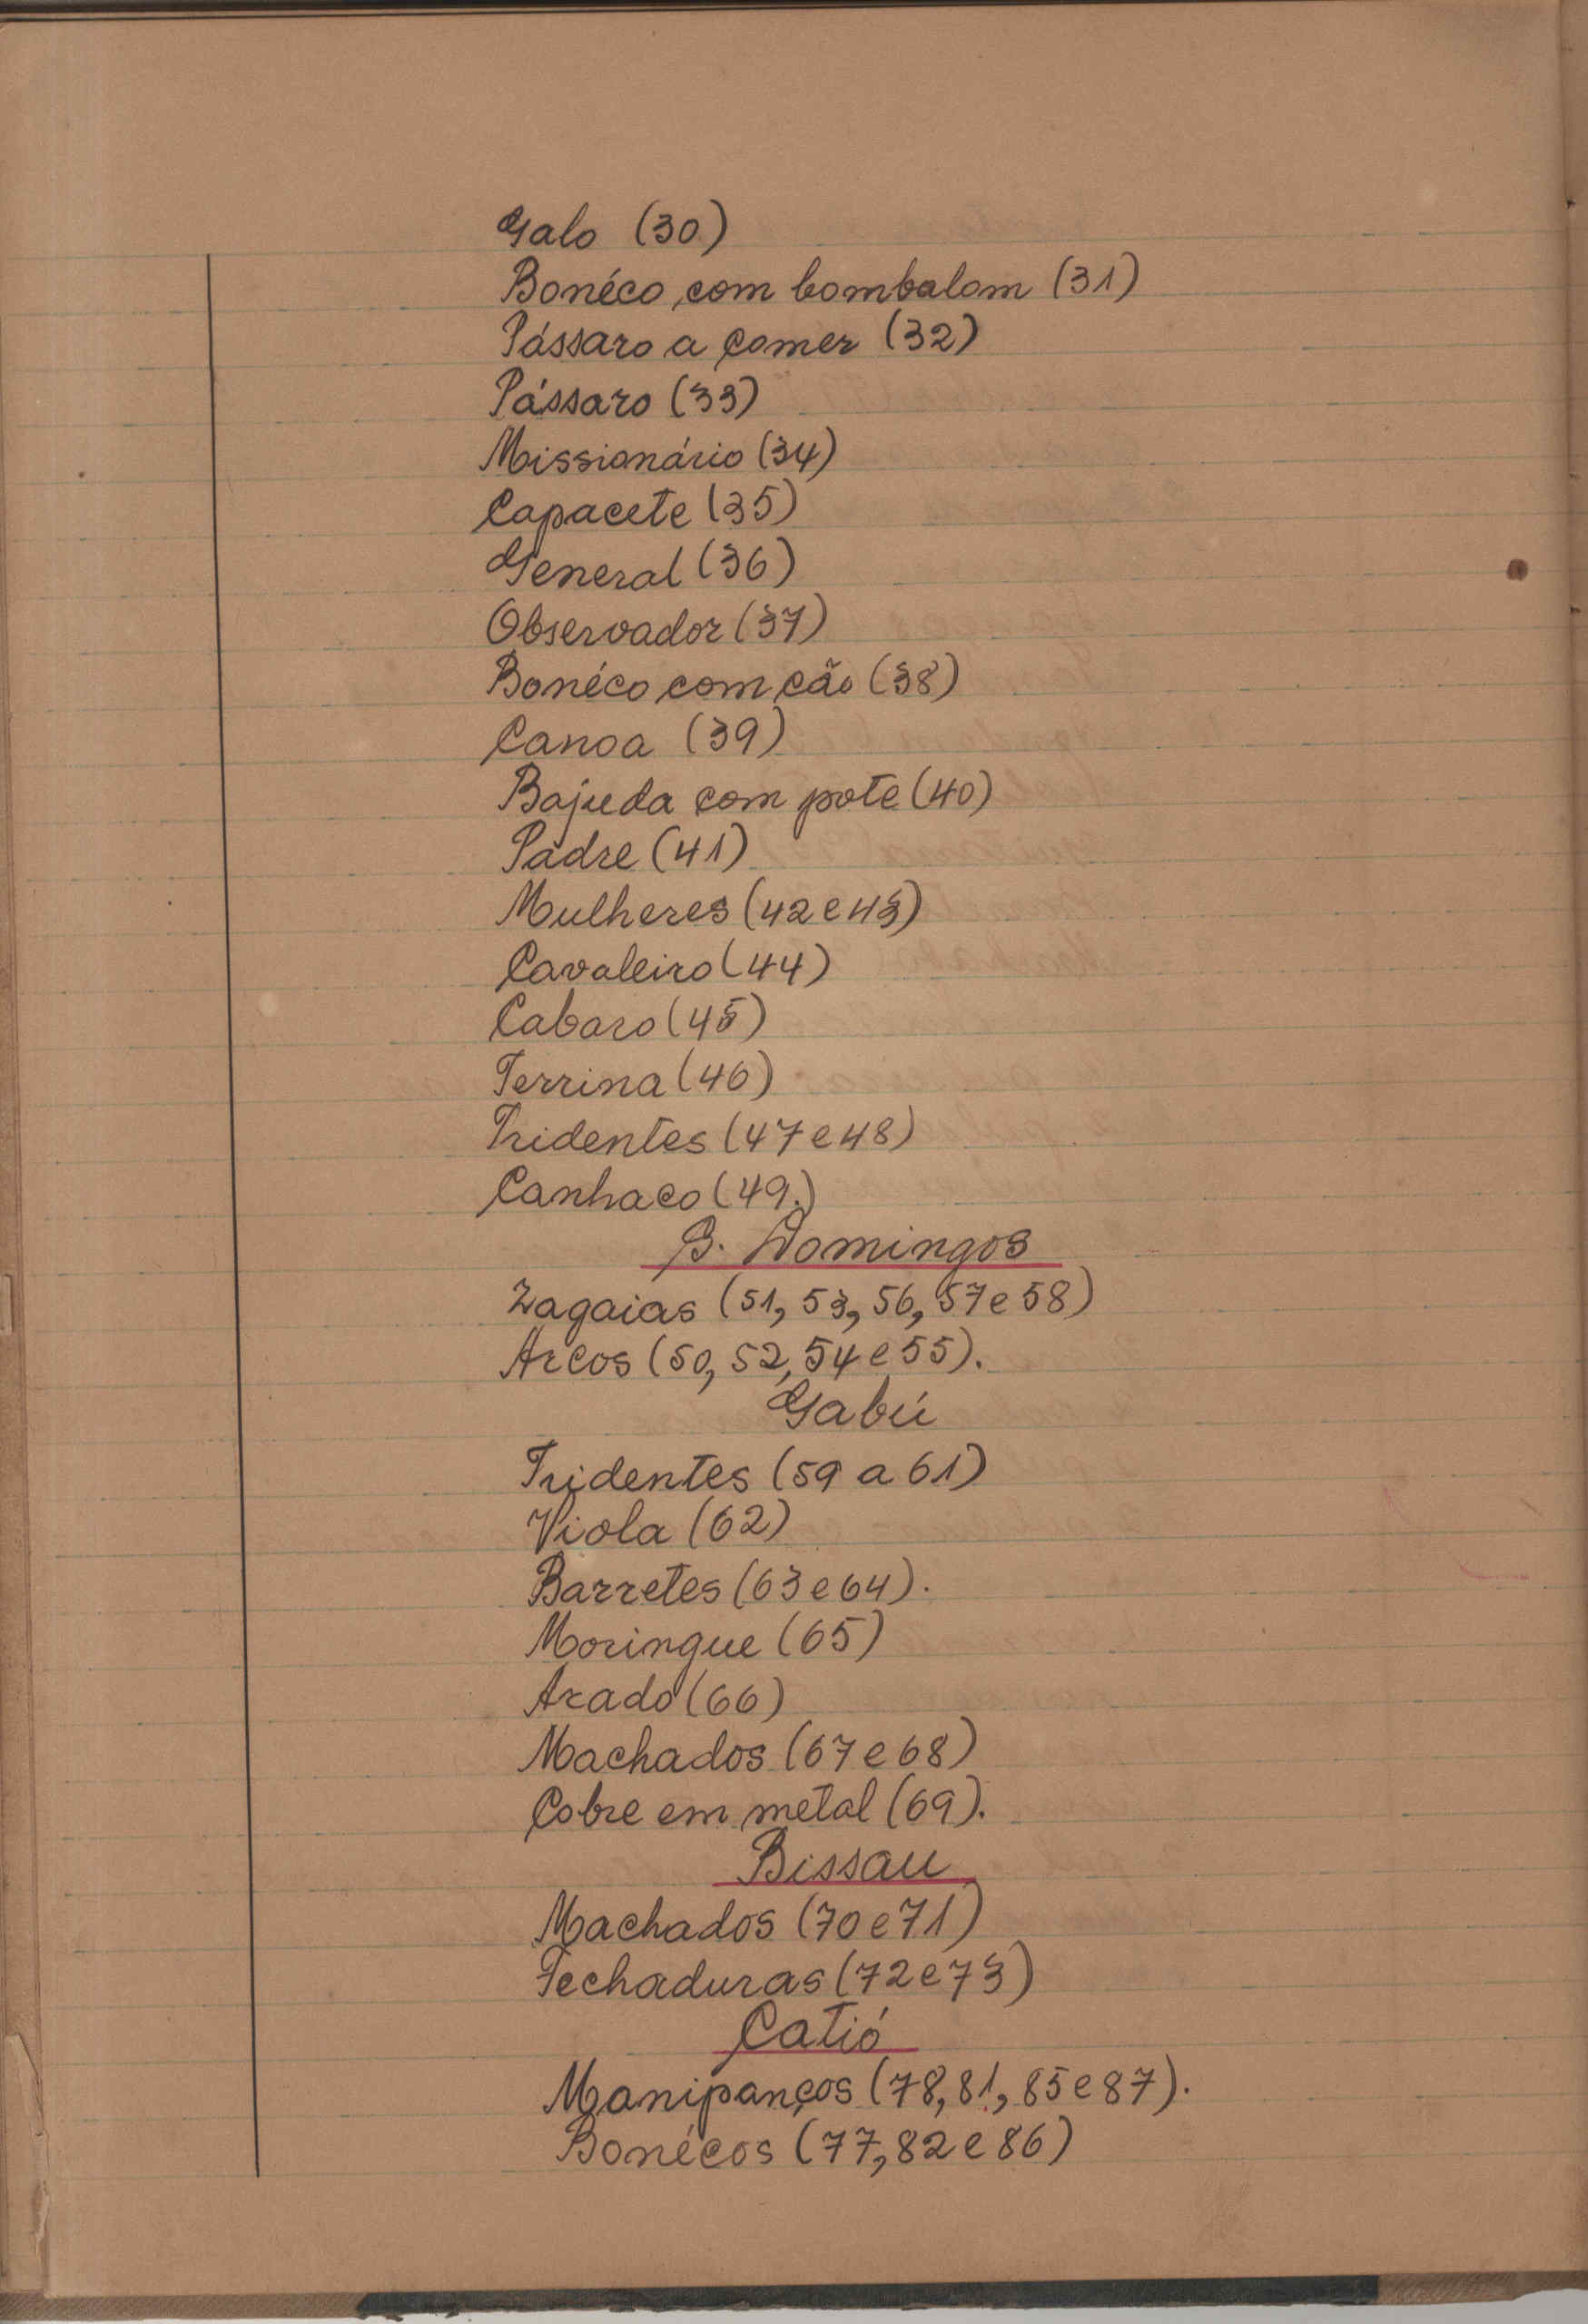 Galo (30)
Bonéco com bombalom (31)
Pássaro a comer (32)
Pássaro (33)
Missionário (34)
Capacete (35)
General (36)
Observador (37)
Bonéco com cão (38)
Canoa (39)
Bajuda com pote (40)
Padre (41)
Mulheres (42 e 43)
Cavaleiro (44)
Cabaro (45)
Terrina (46)
Tridentes (47 e 48)
Canhaco (49.)
S. Domingos
Zagaias (51, 53, 56, 57 e 58)
Arcos (50, 52, 54 e 55).
Gabú
Tridentes (59 a 61)
Viola (62)
Barretes (63 e 64).
Moringue (65)
Arado (66)
Machados (67 e 68)
Cobre em metal (69).
Bissau
Machados (70 e 71)
Fechaduras (72 e 73)
Catió
Manipanços (78, 81, 85 e 87).
Bonécos (77, 82 e 86)